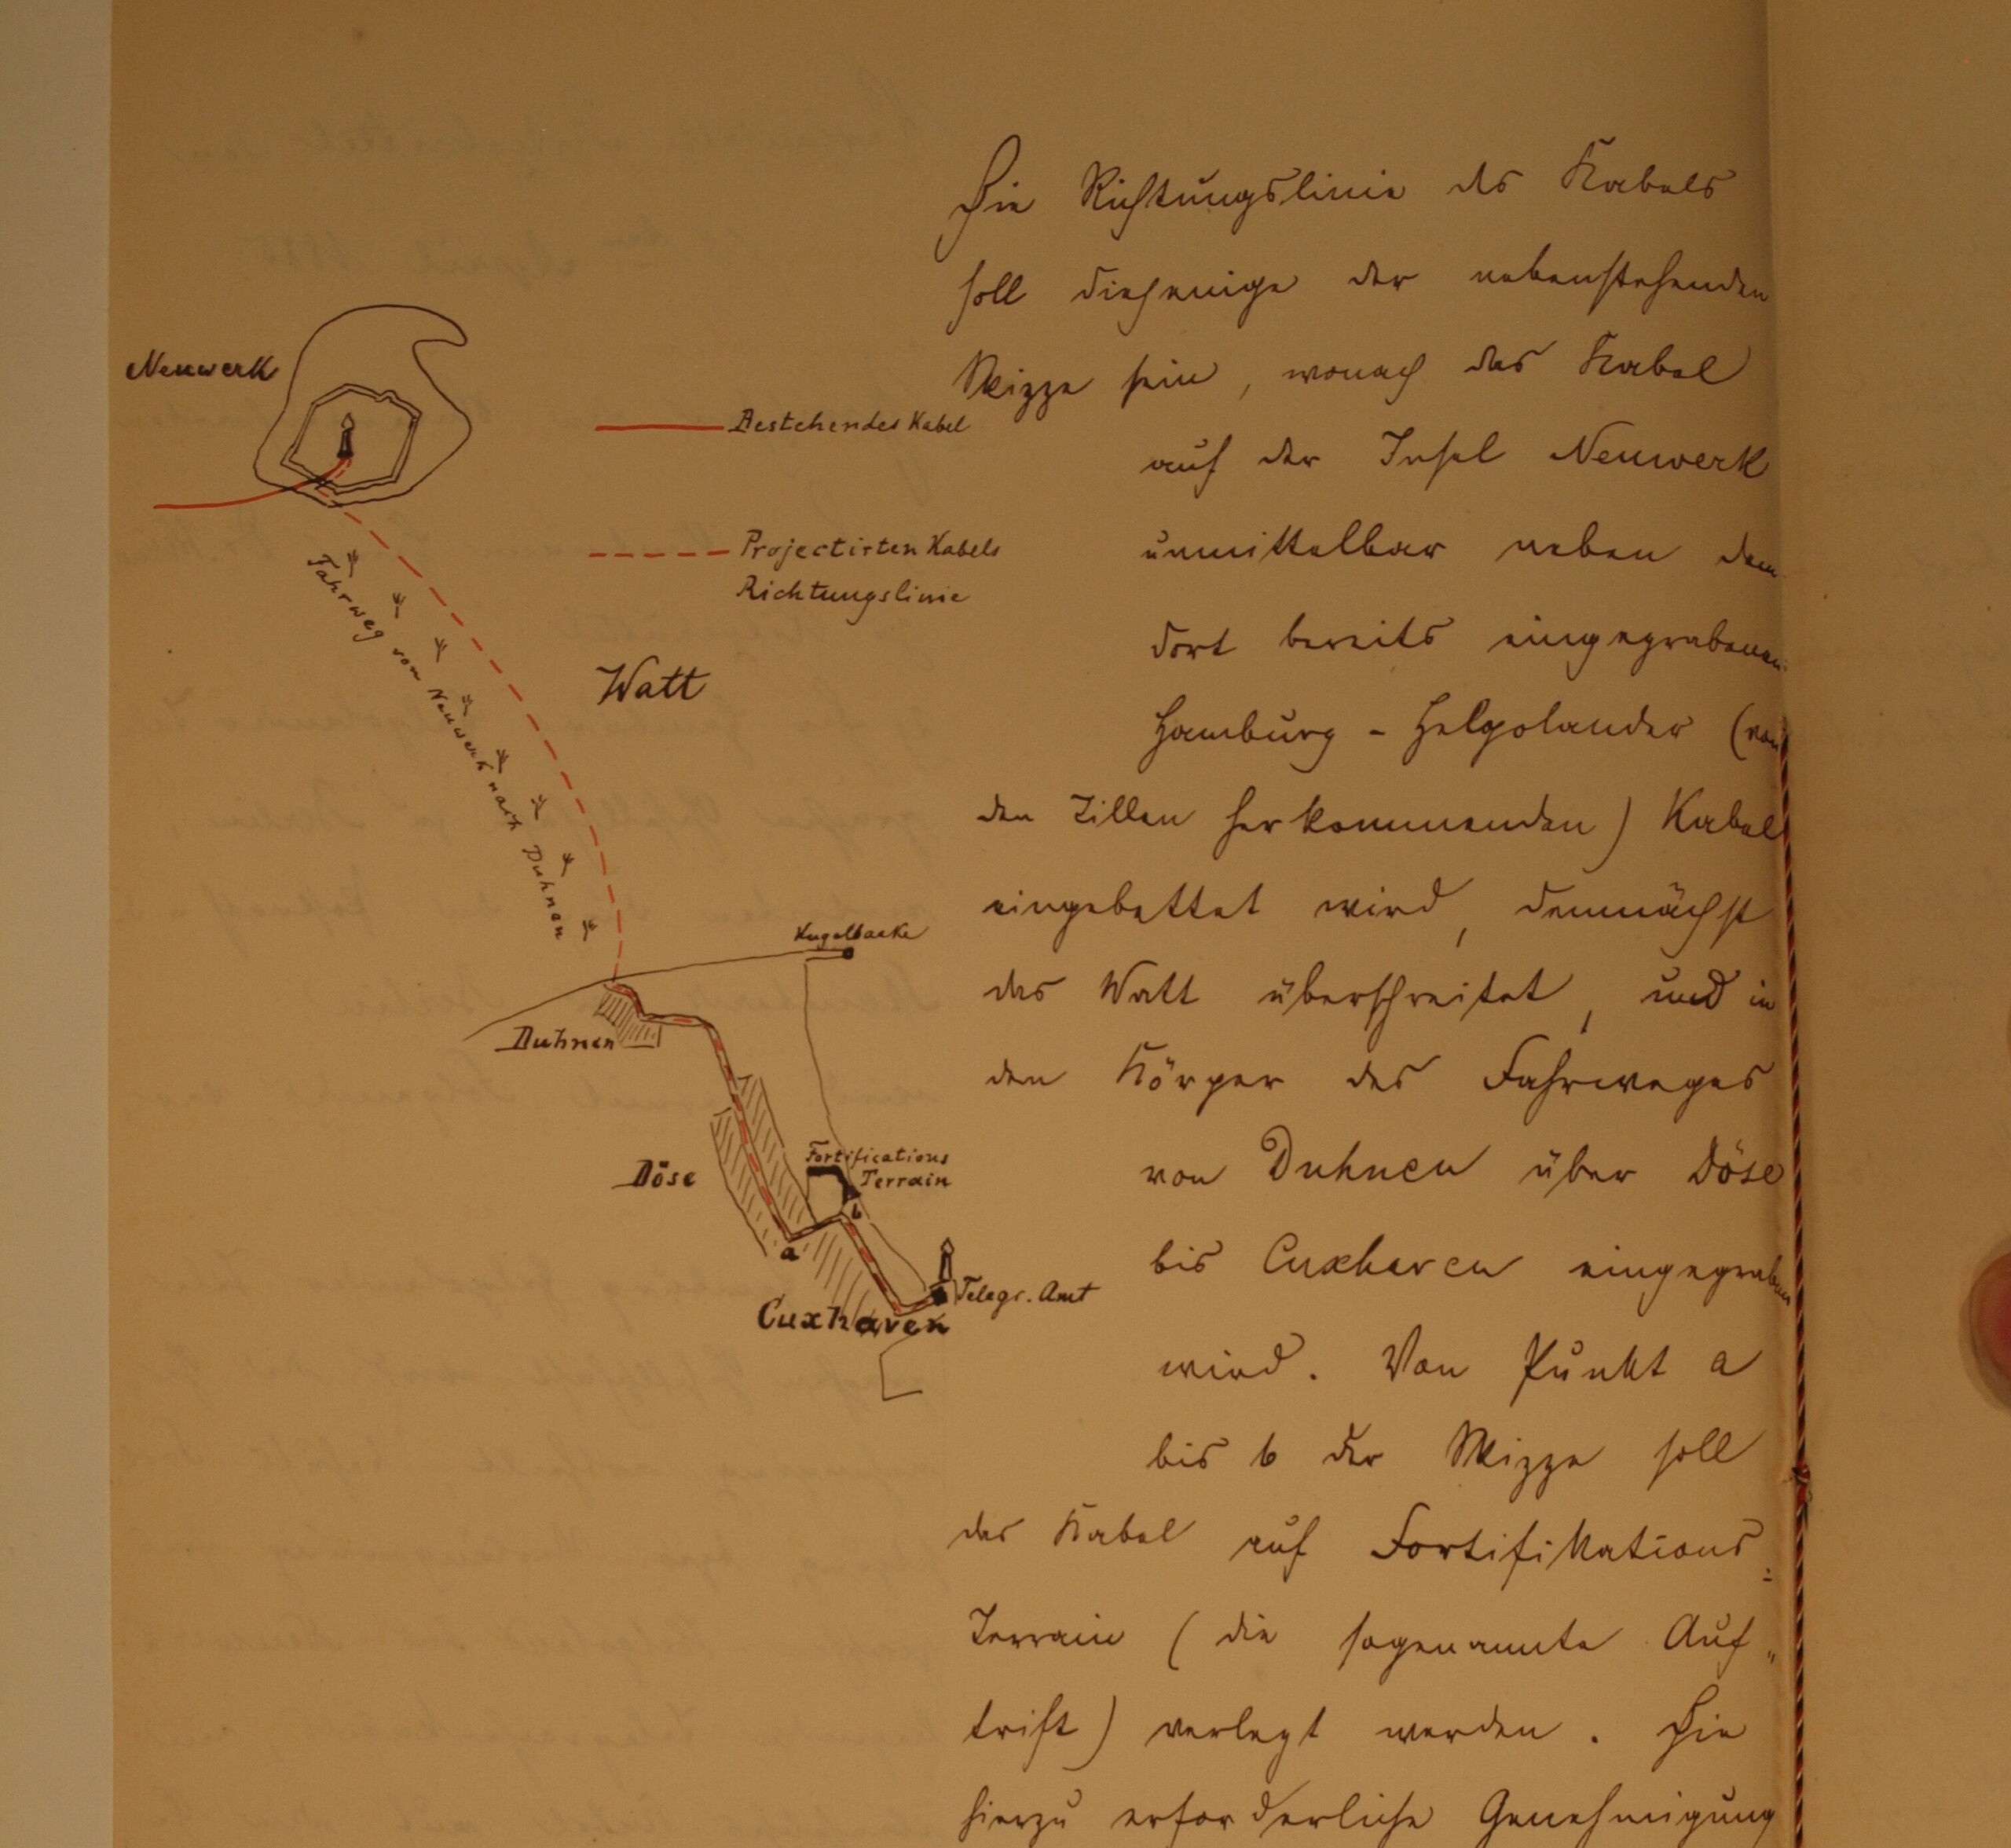 Die Richtungslinie des Kabels
soll diejenige der nebenstehenden
Skizze sein, wonach das Kabel
auf der Insel Neuwerk
unmittelbar neben dem
dort bereits eingegrabenen
Hamburg - Helgolander (von
den Zillen herkommenden) Kabel
eingebettet wird, demnächst
das Watt überschreitet, und in
den Körper des Fahrweges
von Duhnen über Döse
bis Cuxhaven eingegraben
wird. Von Punkt a
bis b der Skizze soll
das Kabel auf Fortifikations-
Terrain (die sogenannte Auf-
trift) verlegt werden. Die
hierzu erforderliche Genehmigung
Neuwerk
Bestehendes Kabel
Projectirten Kabels
Richtungslinie
Fahrweg von Neuwerk nach Duhnen
Watt
Kugelbacke
Duhnen
Döse
Fortifications
Terrain
a
b
Telegr. Amt
Cuxhaven